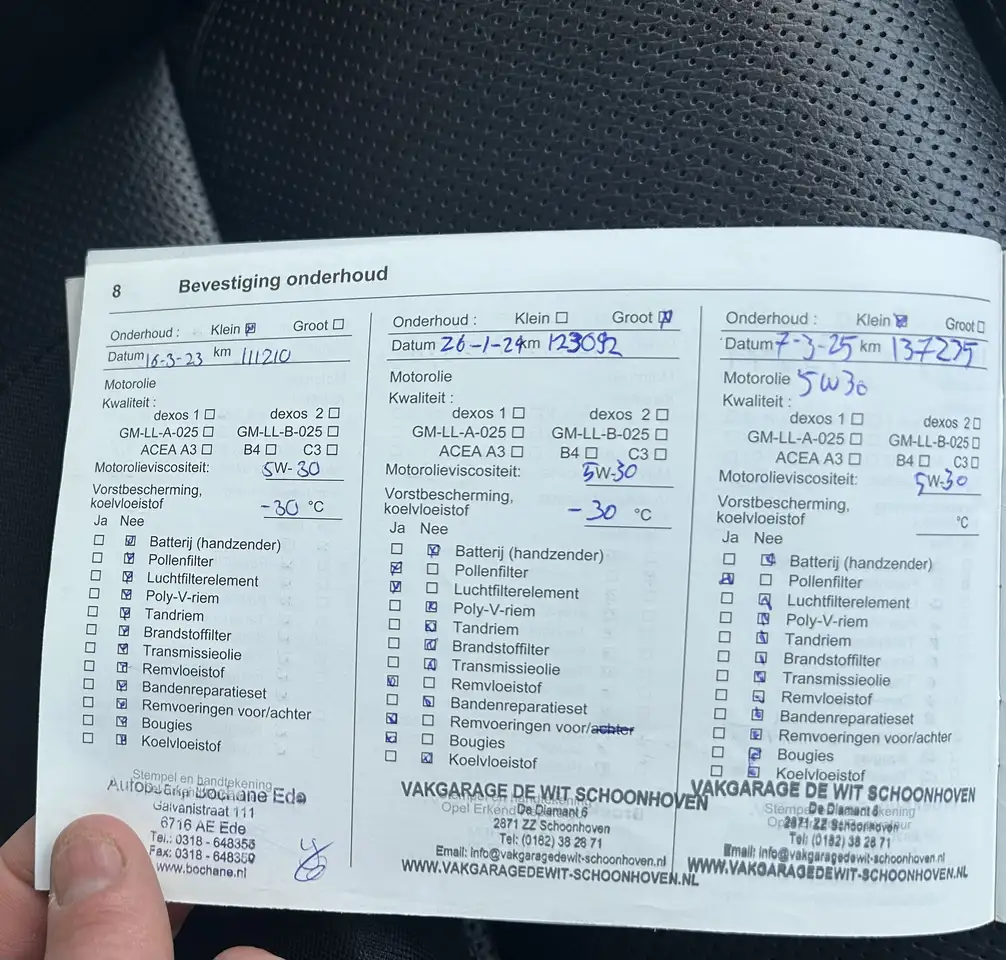 8 Bevestiging onderhoud
Onderhoud : Klein ☒ Groot ☐
Datum 16-3-23 km 111210
Motorolie
Kwaliteit :
dexos 1 ☐ dexos 2 ☐
GM-LL-A-025 ☐ GM-LL-B-025 ☐
ACEA A3 ☐ B4 ☐ C3 ☐
Motorolieviscositeit: 5W-30
Vorstbescherming,
koelvloeistof -30 °C
Ja Nee
☐ ☒ Batterij (handzender)
☐ ☒ Pollenfilter
☐ ☒ Luchtfilterelement
☐ ☒ Poly-V-riem
☐ ☒ Tandriem
☐ ☒ Brandstoffilter
☐ ☒ Transmissieolie
☐ ☒ Remvloeistof
☐ ☒ Bandenreparatieset
☐ ☒ Remvoeringen voor/achter
☐ ☒ Bougies
☐ ☒ Koelvloeistof
Stempel en handtekening
Bochane Ede
Galvanistraat 111
6716 AE Ede
Tel.: 0318 - 648355
Fax: 0318 - 648350
www.bochane.nl
Onderhoud : Klein ☐ Groot ☒
Datum 26-1-24 km 123092
Motorolie
Kwaliteit :
dexos 1 ☐ dexos 2 ☐
GM-LL-A-025 ☐ GM-LL-B-025 ☐
ACEA A3 ☐ B4 ☐ C3 ☐
Motorolieviscositeit: 5W-30
Vorstbescherming,
koelvloeistof -30 °C
Ja Nee
☐ ☒ Batterij (handzender)
☒ ☐ Pollenfilter
☒ ☐ Luchtfilterelement
☐ ☒ Poly-V-riem
☐ ☒ Tandriem
☐ ☒ Brandstoffilter
☐ ☒ Transmissieolie
☒ ☐ Remvloeistof
☐ ☒ Bandenreparatieset
☒ ☐ Remvoeringen voor/achter
☒ ☐ Bougies
☐ ☒ Koelvloeistof
VAKGARAGE DE WIT SCHOONHOVEN
Opel Erkend De Diamant 6
2871 ZZ Schoonhoven
Tel: (0182) 38 28 71
Email: info@vakgaragedewit-schoonhoven.nl
WWW.VAKGARAGEDEWIT-SCHOONHOVEN.NL
Onderhoud : Klein ☒ Groot ☐
Datum 7-3-25 km 137235
Motorolie 5W30
Kwaliteit :
dexos 1 ☐ dexos 2 ☐
GM-LL-A-025 ☐ GM-LL-B-025 ☐
ACEA A3 ☐ B4 ☐ C3 ☐
Motorolieviscositeit: 5W-30
Vorstbescherming,
koelvloeistof °C
Ja Nee
☐ ☒ Batterij (handzender)
☒ ☐ Pollenfilter
☐ ☒ Luchtfilterelement
☐ ☒ Poly-V-riem
☐ ☒ Tandriem
☐ ☒ Brandstoffilter
☐ ☒ Transmissieolie
☐ ☒ Remvloeistof
☐ ☒ Bandenreparatieset
☐ ☒ Remvoeringen voor/achter
☐ ☒ Bougies
☐ ☒ Koelvloeistof
VAKGARAGE DE WIT SCHOONHOVEN
De Diamant 6
2871 ZZ Schoonhoven
Tel: (0182) 38 28 71
Email: info@vakgaragedewit-schoonhoven.nl
WWW.VAKGARAGEDEWIT-SCHOONHOVEN.NL